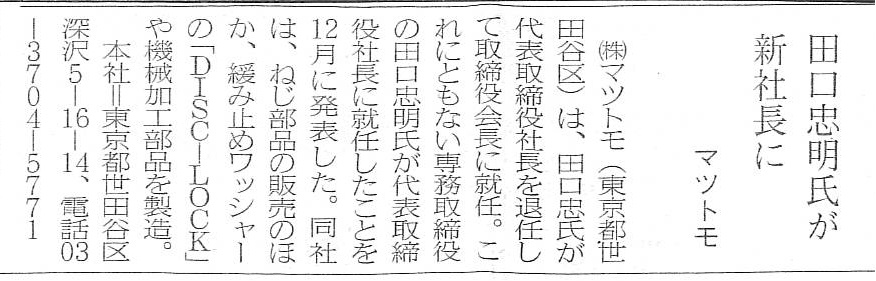 田口忠明氏が
新社長に
マツトモ
㈱マツトモ（東京都世
田谷区）は、田口忠氏が
代表取締役社長を退任し
て取締役会長に就任。こ
れにともない専務取締役
の田口忠明氏が代表取締
役社長に就任したことを
12月に発表した。同社
は、ねじ部品の販売のほ
か、緩み止めワッシャー
の「DISC－LOCK」
や機械加工部品を製造。
本社＝東京都世田谷区
深沢5－16－14、電話03
－3704－5771